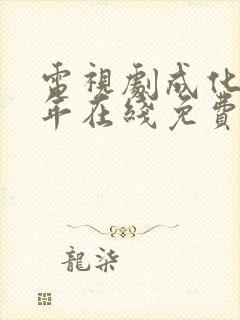 電視劇成化
年在綫免費
龍柒